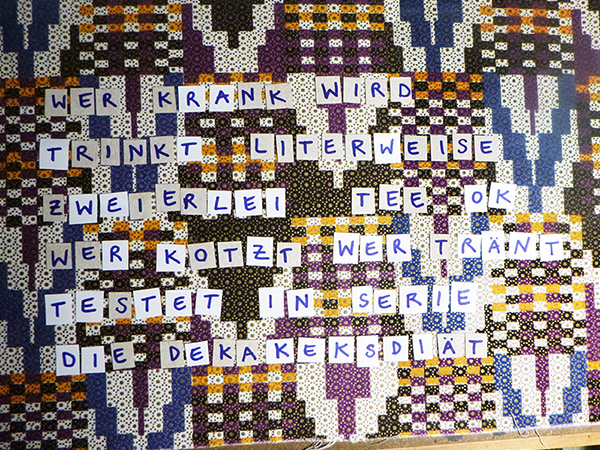 WER KRANK WIRD
TRINKT LITERWEISE
ZWEIERLEI TEE OK
WER KOTZT WER TRÄNT
TESTET IN SERIE
DIE DEKAKEKSDIÄT